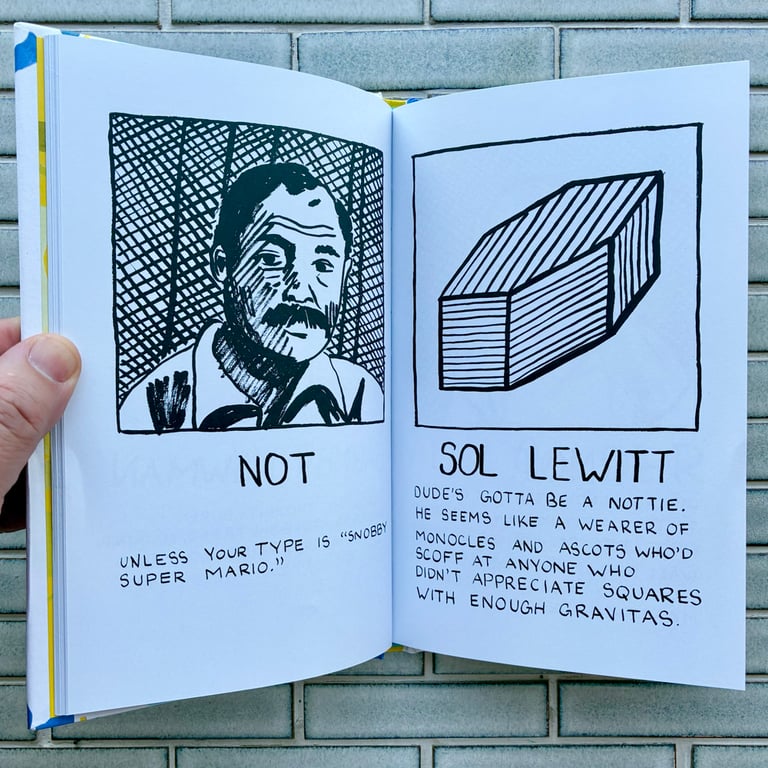 NOT
UNLESS YOUR TYPE IS "SNOBBY
SUPER MARIO."
SOL LEWITT
DUDE'S GOTTA BE A NOTTIE.
HE SEEMS LIKE A WEARER OF
MONOCLES AND ASCOTS WHO'D
SCOFF AT ANYONE WHO
DIDN'T APPRECIATE SQUARES
WITH ENOUGH GRAVITAS.